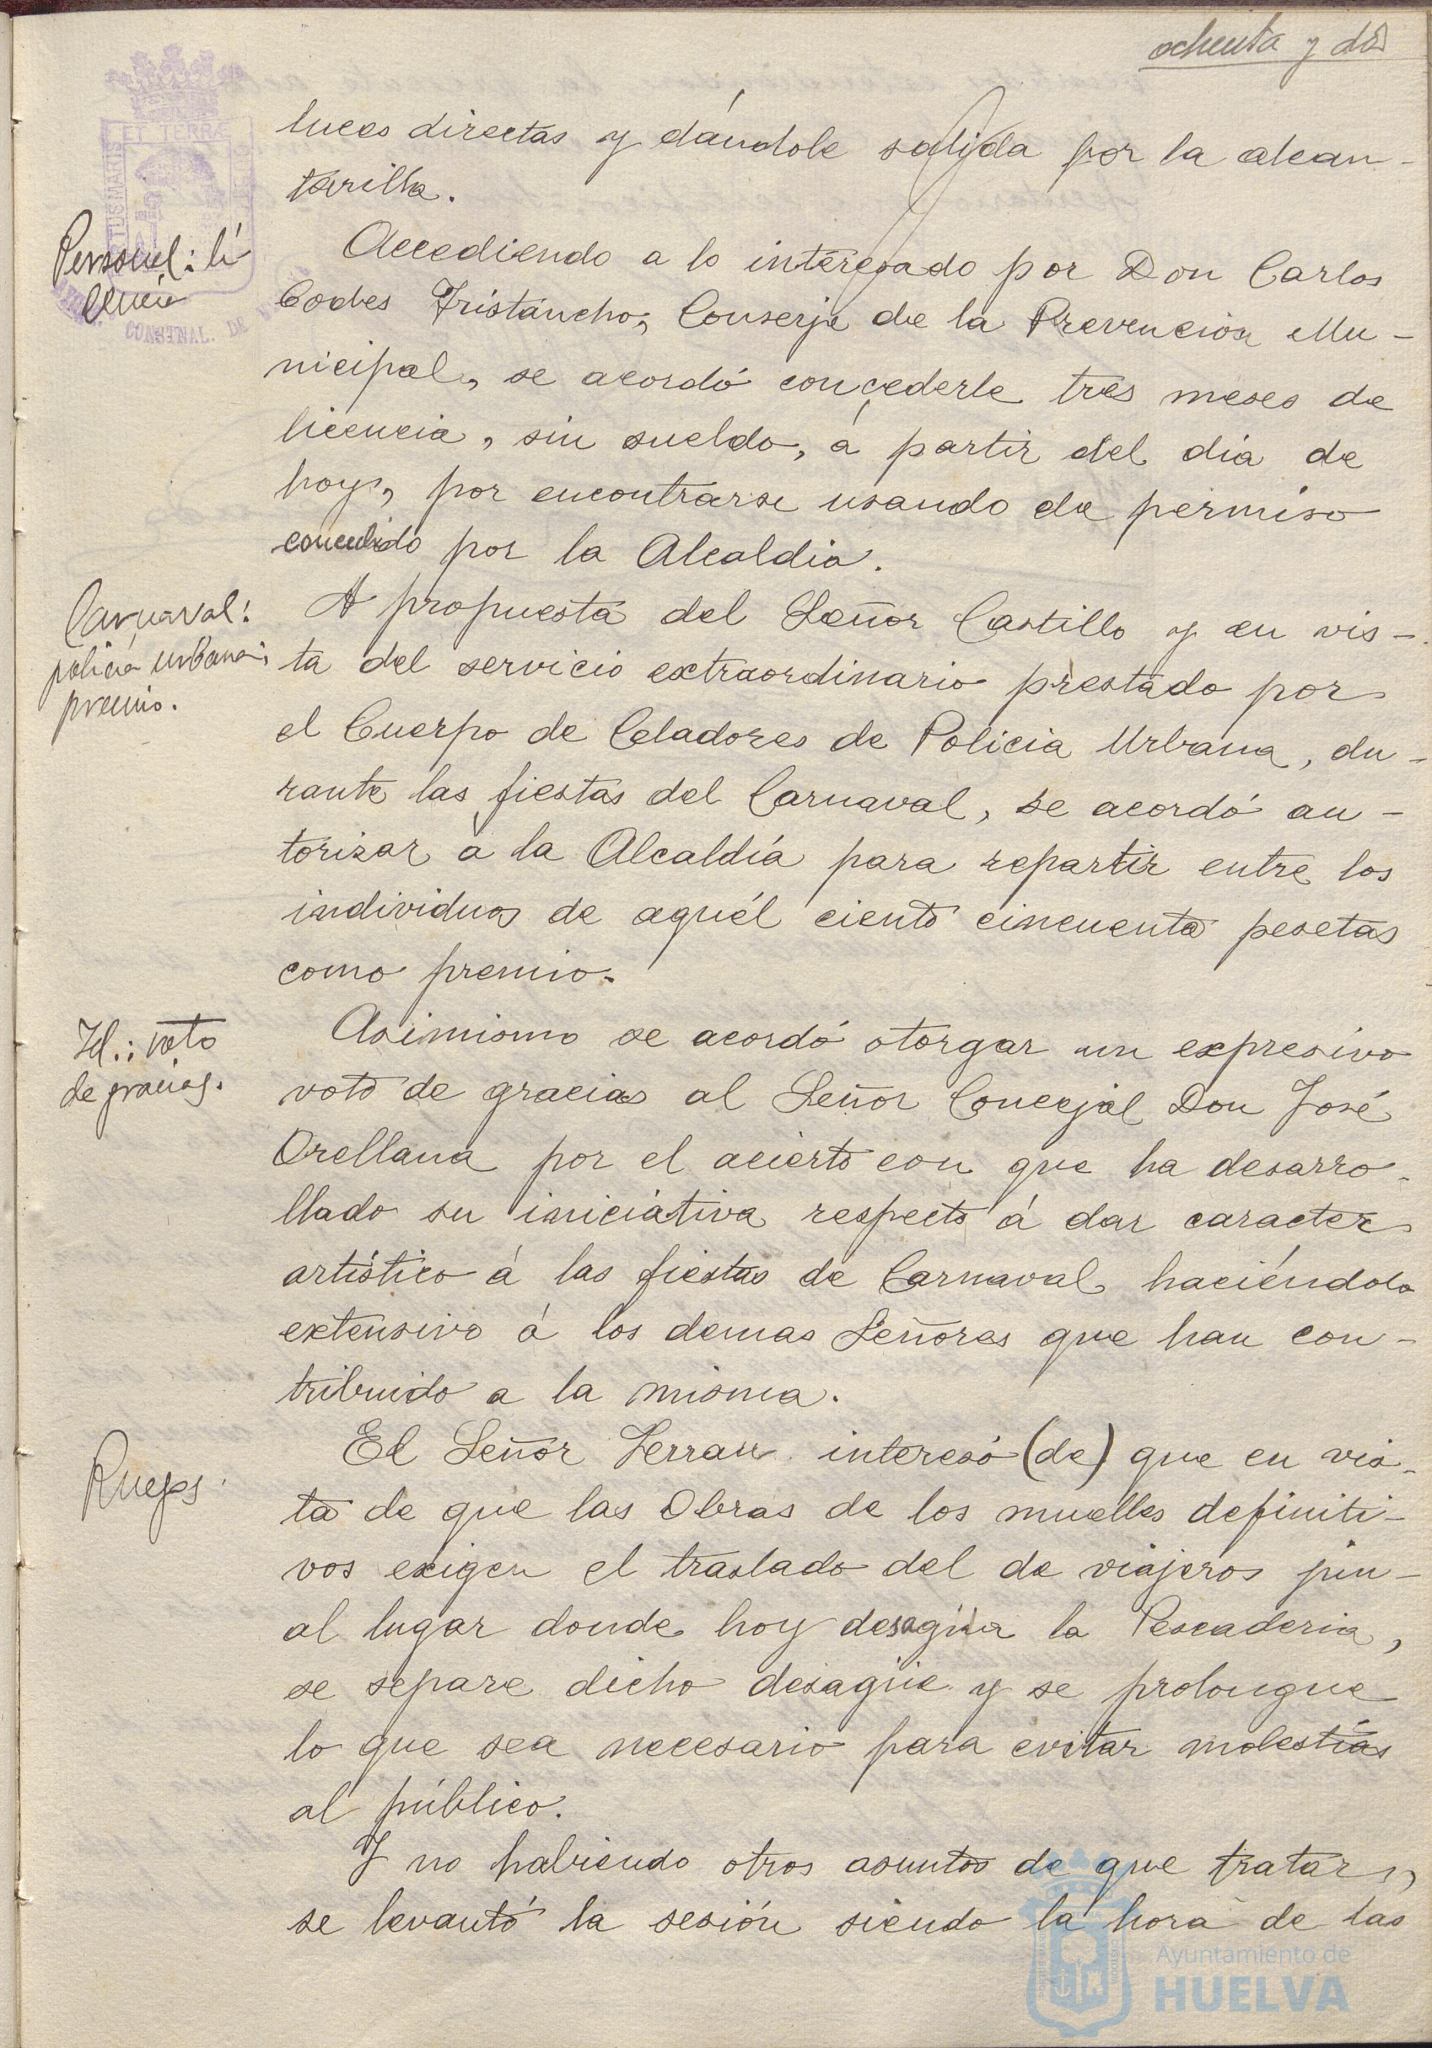 ochenta y dos
luces directas y dándole salida por la alcan-
tarilla.
Personal: li
cencia
Accediendo a lo interesado por Don Carlos
Codes Tristáncho, Conserje de la Prevención Mu-
nicipal, se acordó concederle tres meses de
licencia, sin sueldo, á partir del dia de
hoy, por encontrarse usando de permiso
concedido por la Alcaldia.
Carnaval:
policia urbana:
premio.
A propuesta del Señor Castillo y en vis-
ta del servicio extraordinario prestado por
el Cuerpo de Celadores de Policia Urbana, du-
rante las fiestas del Carnaval, se acordó au-
torizar a la Alcaldía para repartir entre los
individuos de aquél ciento cincuenta pesetas
como premio.
Id.: voto
de gracias.
Asimismo se acordó otorgar un expresivo
voto de gracias al Señor Concejal Don José
Orellana por el acierto con que ha desarro-
llado su iniciativa respecto á dar caracter
artistico á las fiestas de Carnaval haciéndolo
extensivo á los demas Señores que han con-
tribuido a la misma.
Ruegos
El Señor Terran interesó (de) que en vis-
ta de que las Obras de los muelles definiti-
vos exigen el traslado del de viajeros
al lugar donde hoy desagüa la Pescaderia,
se separe dicho desagüe y se prolongue
lo que sea necesario para evitar molestias
al público.
Y no habiendo otros asuntos de que tratar,
se levantó la sesión siendo la hora de las
ET TERRÆ
CUSTODIA
CONSTNAL. DE
Ayuntamiento de
HUELVA